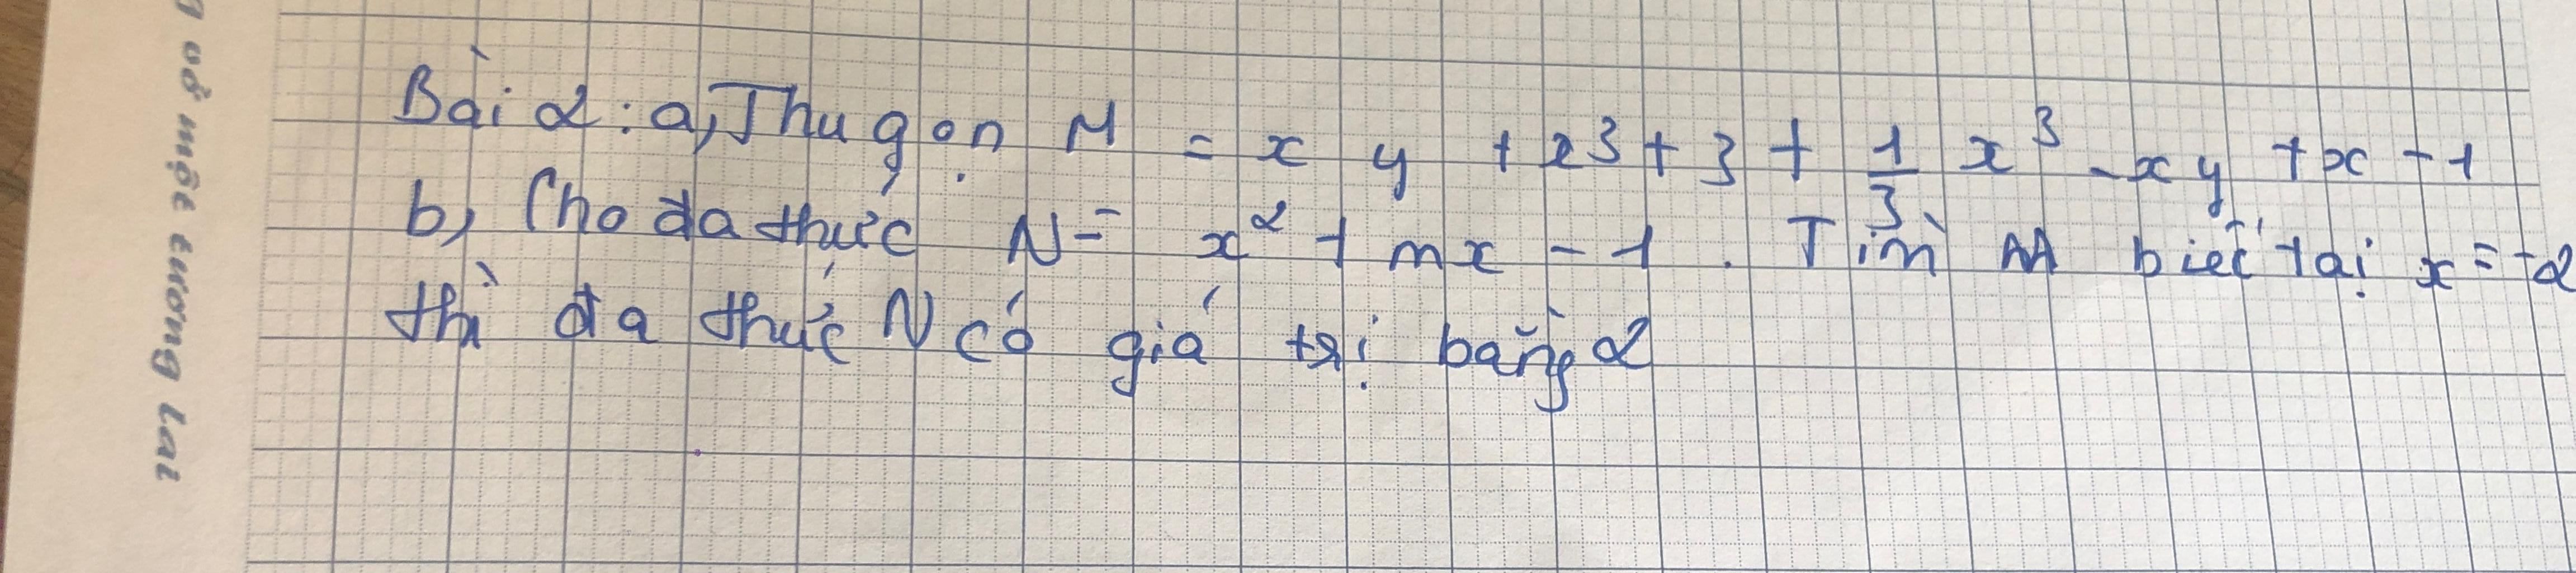 Bài 2: a, Thu gọn M = x y + x³ + 3 + 1/3 x³ - xy + x - 1
b, Cho đa thức N = x² + mx - 1. Tìm M biết tại x = -2
thì đa thức N có giá trị bằng 2
ở một tương lai